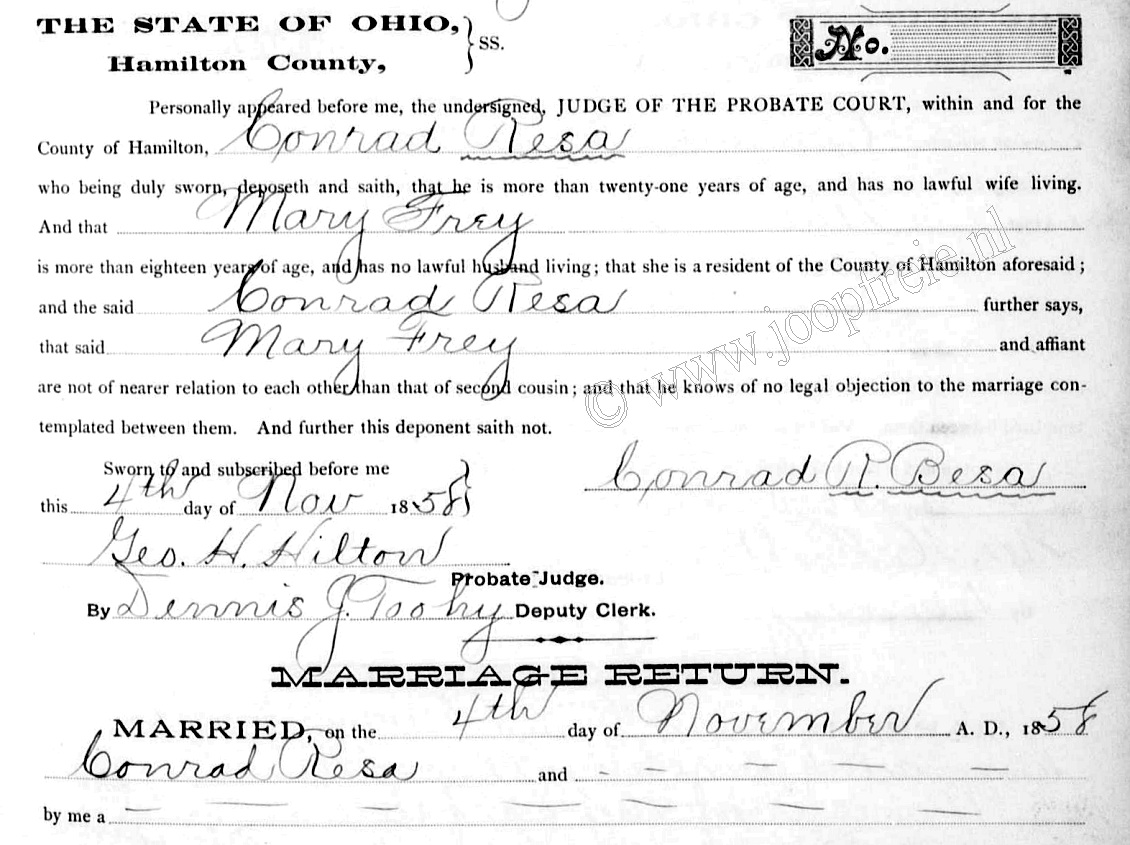 THE STATE OF OHIO, } SS.
Hamilton County,
No.
Personally appeared before me, the undersigned, JUDGE OF THE PROBATE COURT, within and for the
County of Hamilton, Conrad Resa
who being duly sworn, deposeth and saith, that he is more than twenty-one years of age, and has no lawful wife living.
And that Mary Frey
is more than eighteen years of age, and has no lawful husband living; that she is a resident of the County of Hamilton aforesaid;
and the said Conrad Resa further says,
that said Mary Frey and affiant
are not of nearer relation to each other than that of second cousin; and that he knows of no legal objection to the marriage con-
templated between them. And further this deponent saith not.
Sworn to and subscribed before me
Conrad R. Besa
this 4th day of Nov 1858
Geo. H. Hilton
Probate Judge.
By Dennis J. Toohy Deputy Clerk.
MARRIAGE RETURN.
MARRIED, on the 4th day of November A. D., 1858
Conrad Resa and – – – – – –
by me a – – – – – – – –
© www.joopfreie.nl